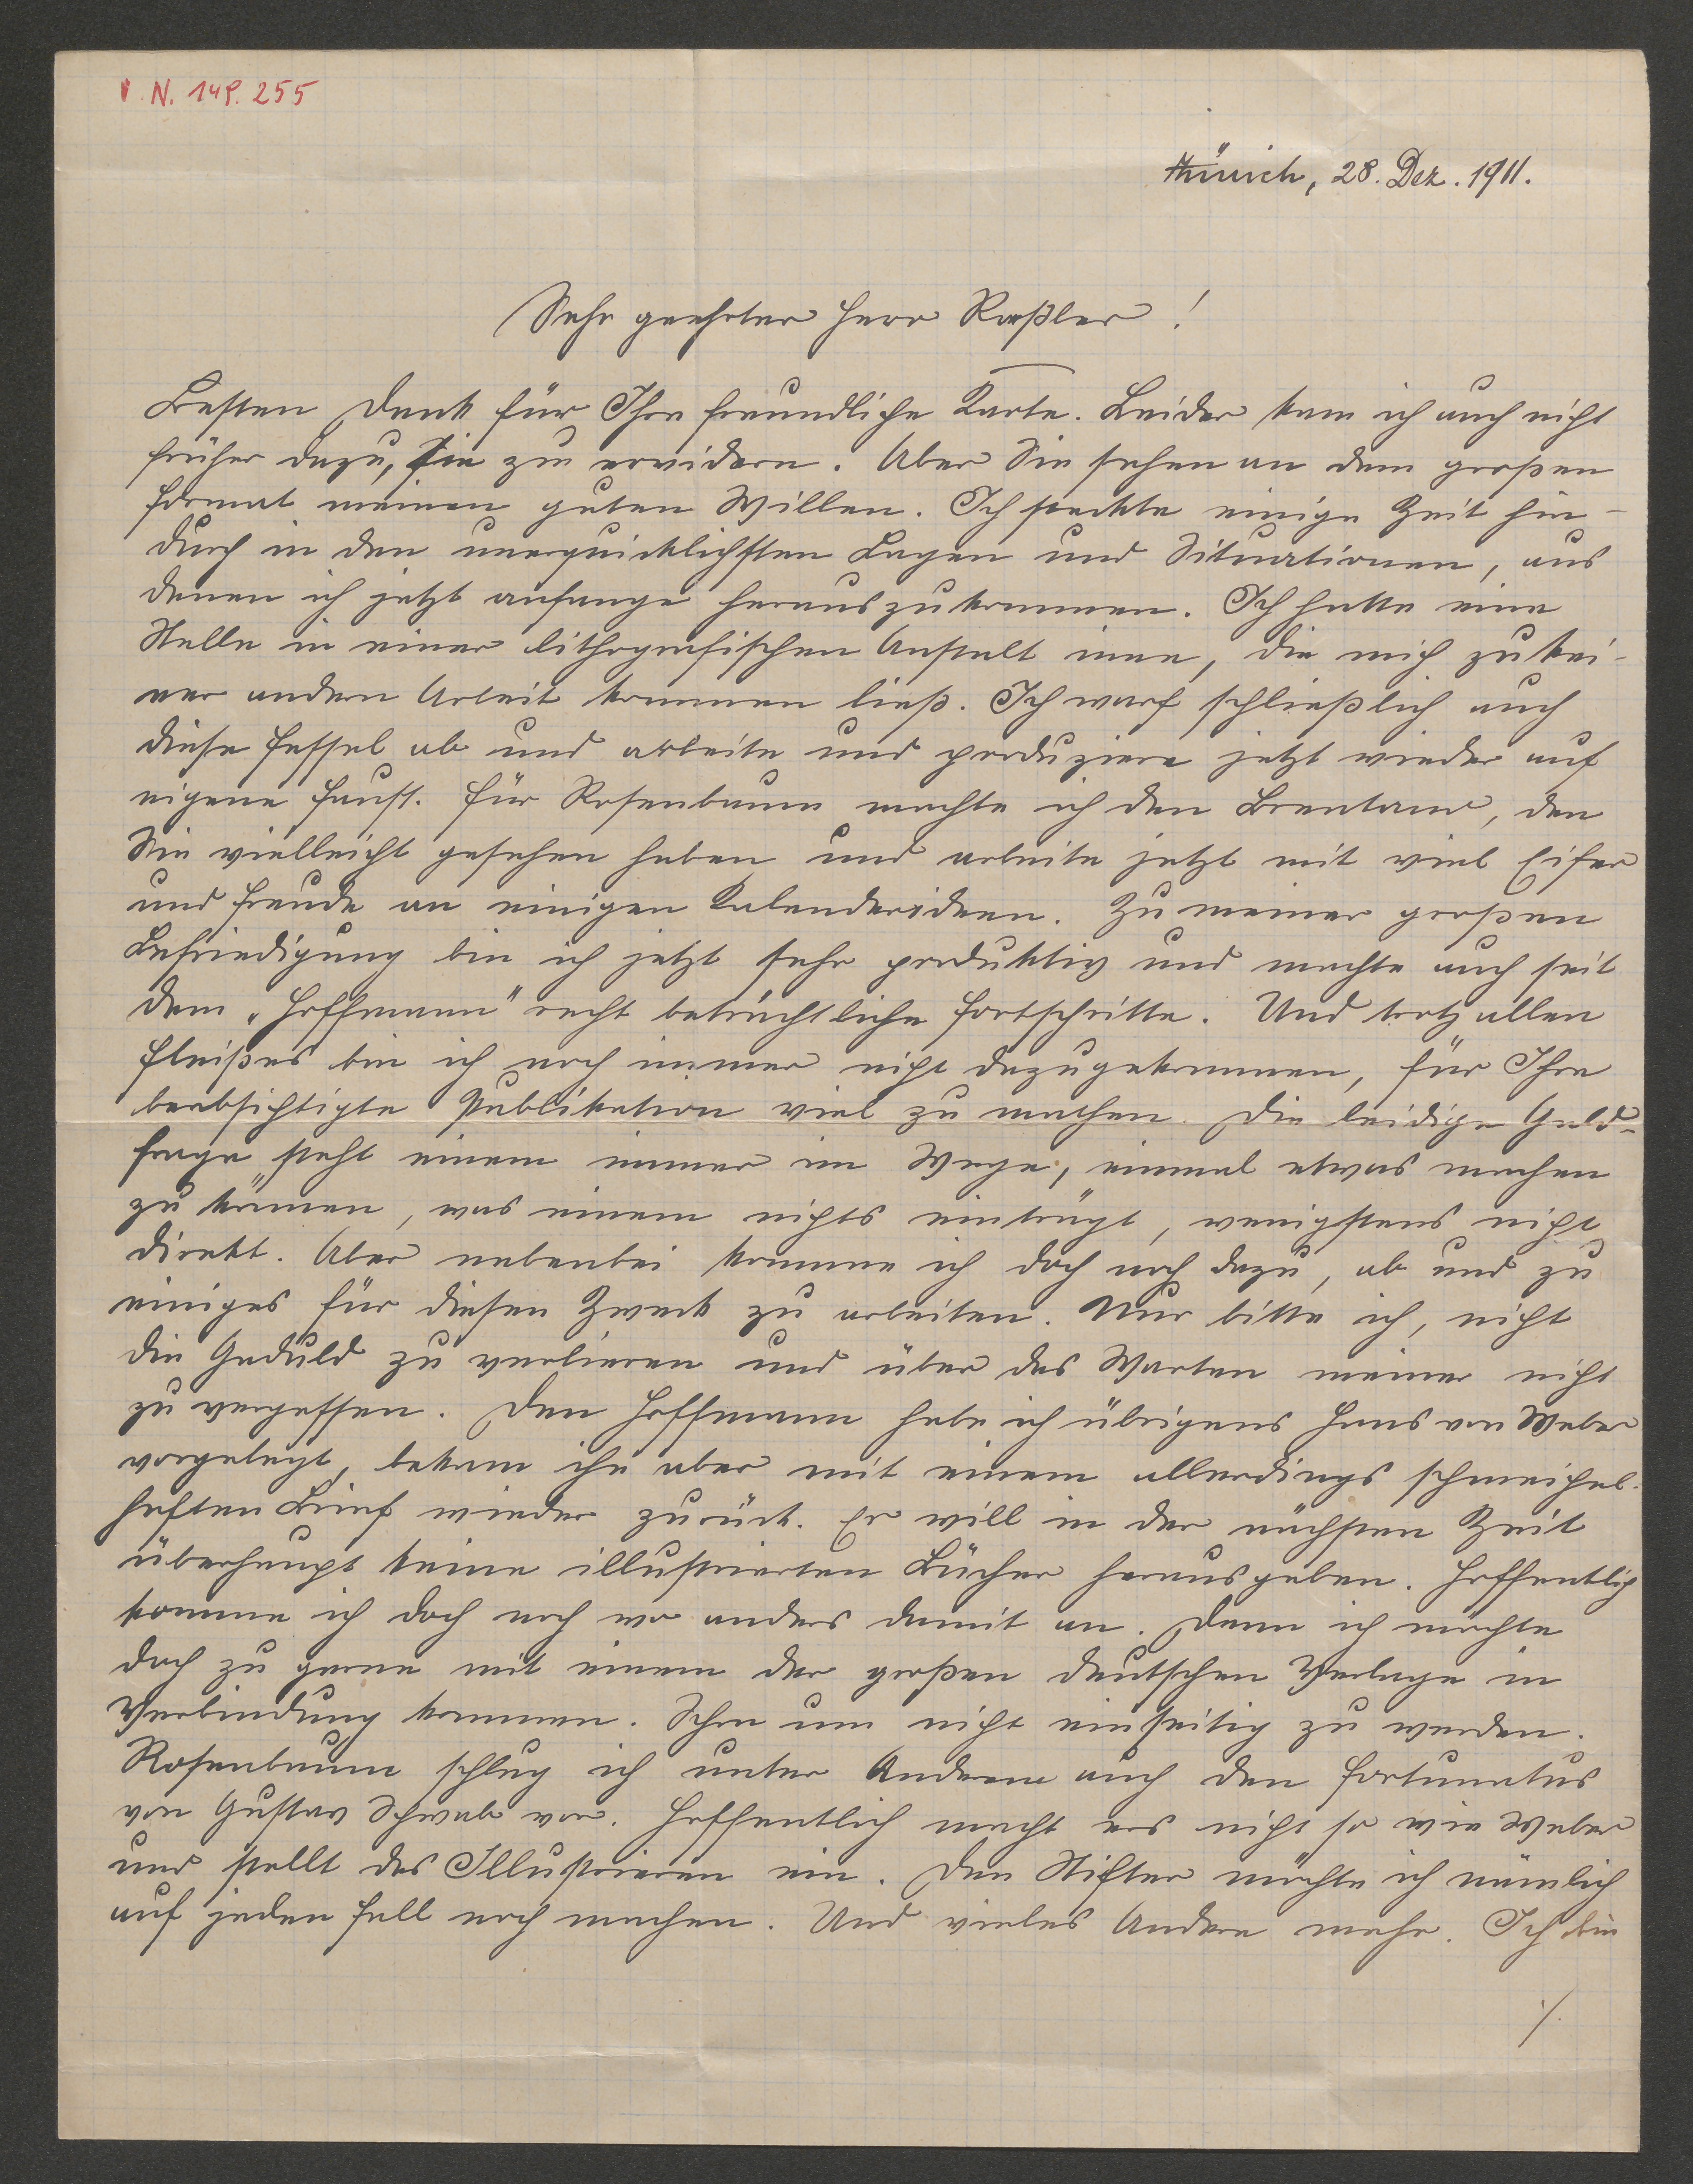 I.N. 148.255
Münich, 28. Dez. 1911.
Sehr geehrter Herr Roeßler!
Besten Dank für Ihre freundliche Karte. Leider kam ich auch nicht
früher dazu, sie zu erwidern. Aber Sie sehen an dem großen
Format meinen guten Willen. Ich steckte einige Zeit hin-
durch in den unerquicklichsten Lagen und Situationen, aus
denen ich jetzt anfange herauszukommen. Ich hatte eine
Stelle in einer lithografischen Anstalt inne, die mich zu kei-
ner andern Arbeit kommen ließ. Ich warf schließlich auch
diese Fessel ab und arbeite und produziere jetzt wieder auf
eigene Faust. Für Rosenbaum machte ich den Brentano, den
Sie vielleicht gesehen haben und arbeite jetzt mit viel Eifer
und Freude an einigen Kalenderideen. Zu meiner großen
Befriedigung bin ich jetzt sehr produktiv und machte auch seit
dem „Hoffmann" recht beträchtliche Fortschritte. Und trotz allen
Fleißes bin ich noch immer nicht dazugekommen, für Ihre
beabsichtigte Publikation viel zu machen. Die leidige Geld-
frage steht einem immer im Wege, einmal etwas machen
zu können, was einem nichts einträgt, wenigstens nicht
direkt. Aber nebenbei komme ich doch noch dazu, ab und zu
einiges für diesen Zweck zu arbeiten. Nur bitte ich, nicht
die Geduld zu verlieren und über das Warten meiner nicht
zu vergessen. Den Hoffmann habe ich übrigens Hans von Weber
vorgelegt, bekam ihn aber mit einem allerdings schmeichel-
haften Brief wieder zurück. Er will in der nächsten Zeit
überhaupt keine illustrierten Bücher herausgeben. Hoffentlich
komme ich doch noch wo anders damit an. Denn ich möchte
doch zu gerne mit einem der großen deutschen Verlage in
Verbindung kommen. Schon um nicht einseitig zu werden.
Rosenbaum schlug ich unter Anderem auch den Fortunatus
von Gustav Schwab vor. Hoffentlich macht ers nicht so wie Weber
und stellt das Illustrieren ein. Den Stifter möchte ich nämlich
auf jeden Fall noch machen. Und vieles Andere mehr. Ich bin
./.